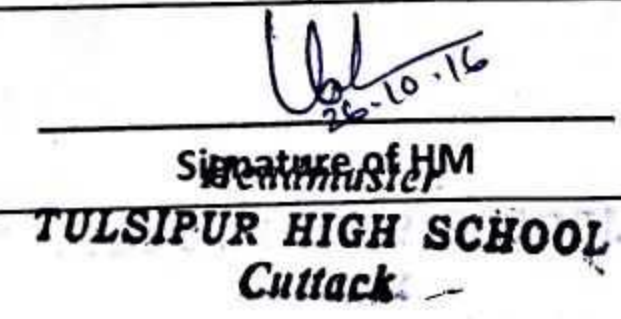 26-10-16
Signature of HM
Headmaster
TULSIPUR HIGH SCHOOL
Cuttack